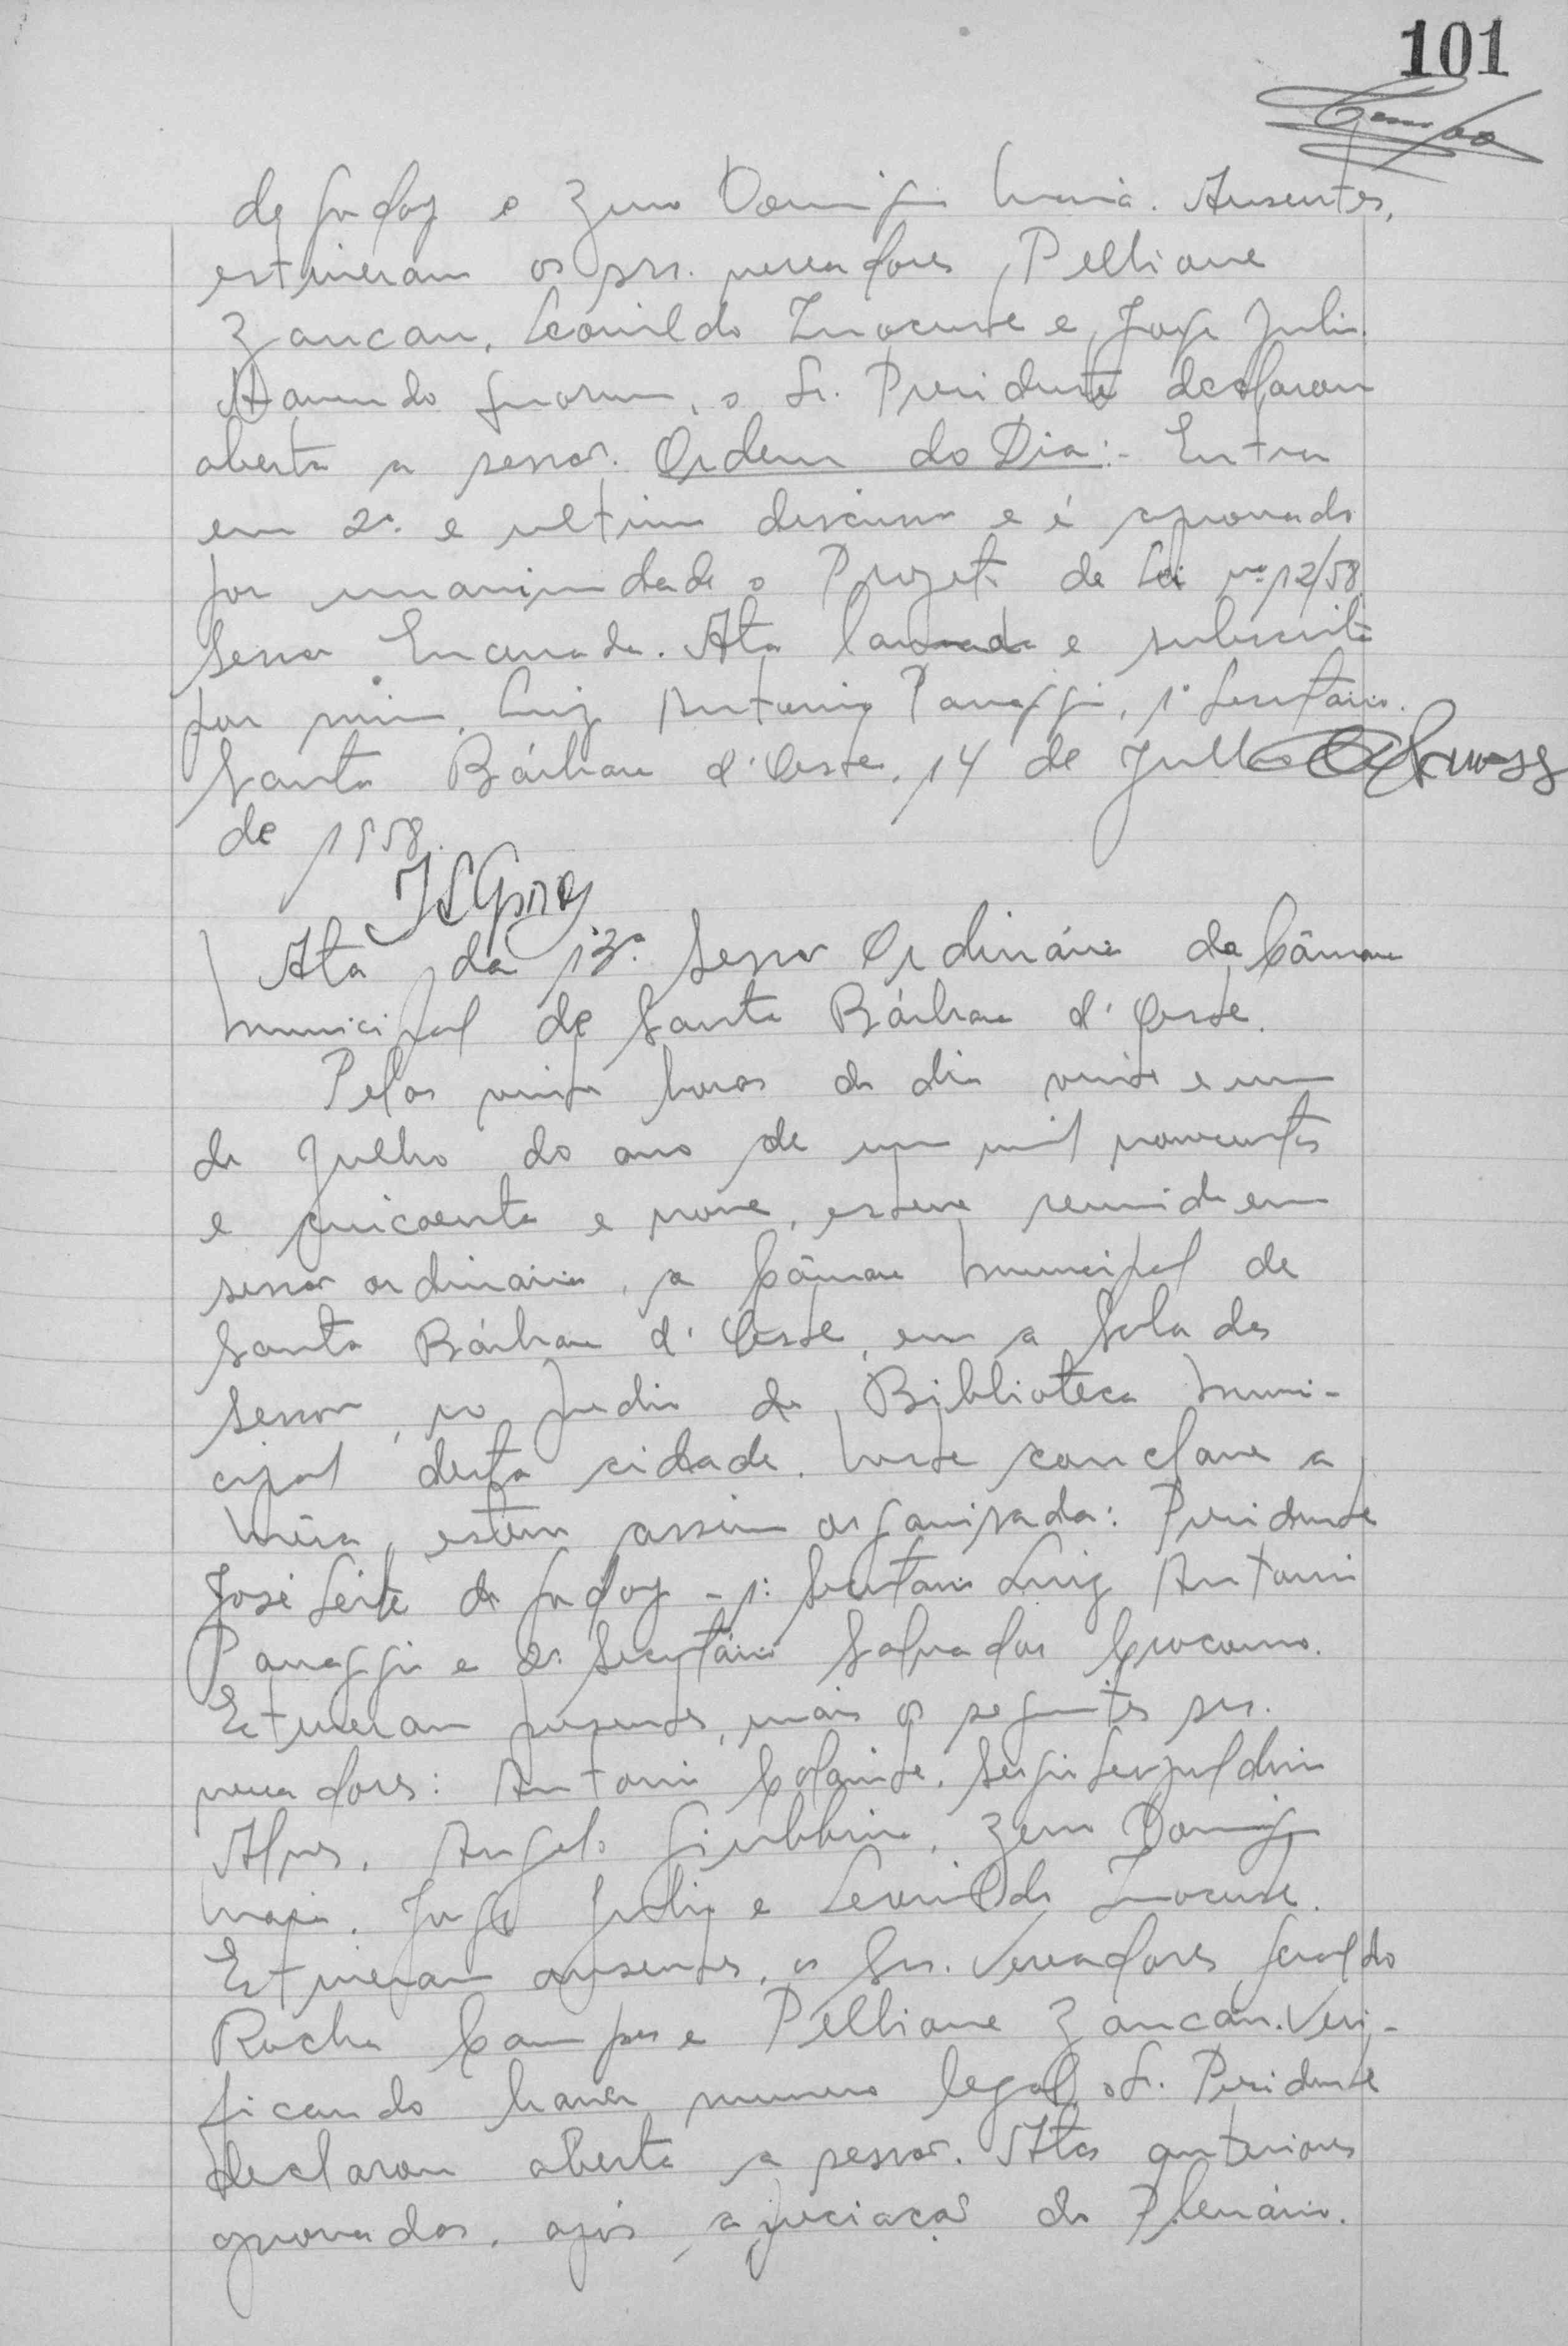 101
de Godoy e Zeno Domingos Maia. Ausentes,
estiveram os srs. vereadores, Pelliane
Zancan, Leovildo Inocente e Jorge Julio.
Havendo quorum, o Sr. Presidente declarou
aberta a sessão. Ordem do Dia:- Entra
em 2ª. e ultima discussão e é aprovado
por unanimidade o Projeto de Lei nº 12/58.
Sessão Encerrada. Ata lavrada e subscrita
por mim, Luiz Antonio Panaggio, 1º Secretário.
Santa Bárbara d'Oeste, 14 de Julho
de 1958.
JLGodoy
Ata da 13ª. Sessão Ordinária da Câmara
Municipal de Santa Bárbara d'Oeste.
Pelas vinte horas do dia vinte e um
de Julho do ano de um mil novecentos
e cincoenta e nove, esteve reunida em
sessão ordinária, a Câmara Municipal de
Santa Bárbara d'Oeste, em a Sala das
Sessões, no predio da Biblioteca Muni-
cipal desta cidade. Neste conclave a
Mêsa, esteve assim organisada: Presidente
José Leite de Godoy - 1º Secretario Luiz Antonio
Panaggio e 2º Secretário Salvador
Estiveram presentes, mais os seguintes srs.
vereadores: Antonio Sergio Leopoldino
Alves, Angelo Giubbina, Zeno Domingos
Maia, Jorge Julio e Leovildo Inocente.
Estiveram ausentes, os Srs. Vereadores Geraldo
Rocha Campos e Pelliane Zancan. Veri-
ficando haver numero legal, o Sr. Presidente
declarou aberta a sessão. Atas anteriores
aprovadas, após apreciação do Plenário.